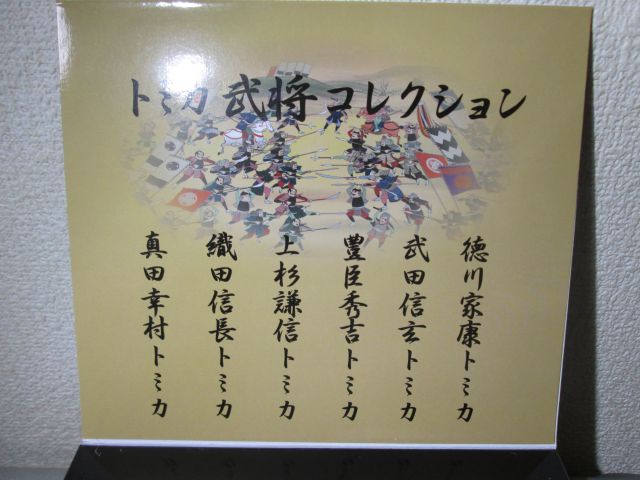 トミカ 武将コレクション
徳川家康トミカ
武田信玄トミカ
豊臣秀吉トミカ
上杉謙信トミカ
織田信長トミカ
真田幸村トミカ